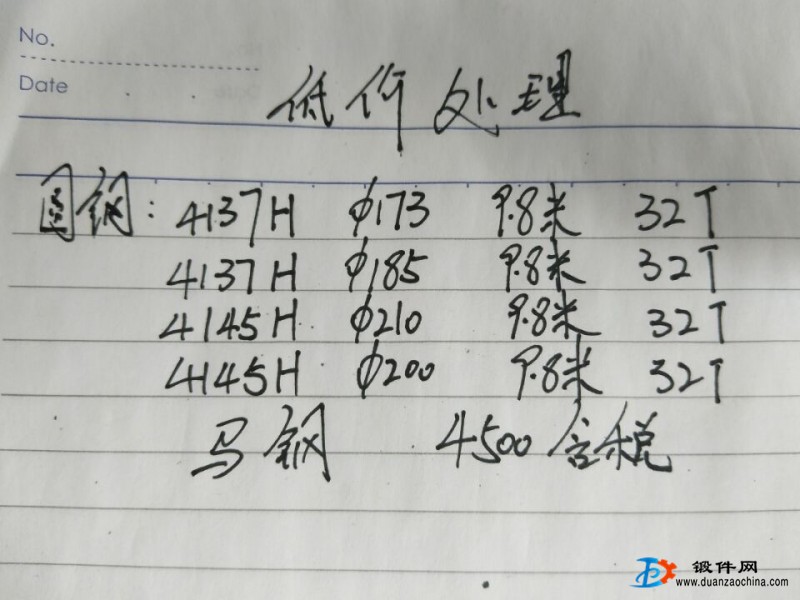 No.
Date
低价处理
圆钢: 4137H φ173 9.8米 32T
4137H φ185 9.8米 32T
4145H φ210 9.8米 32T
4145H φ200 9.8米 32T
马钢 4500含税
锻件网
www.duanzaochina.com